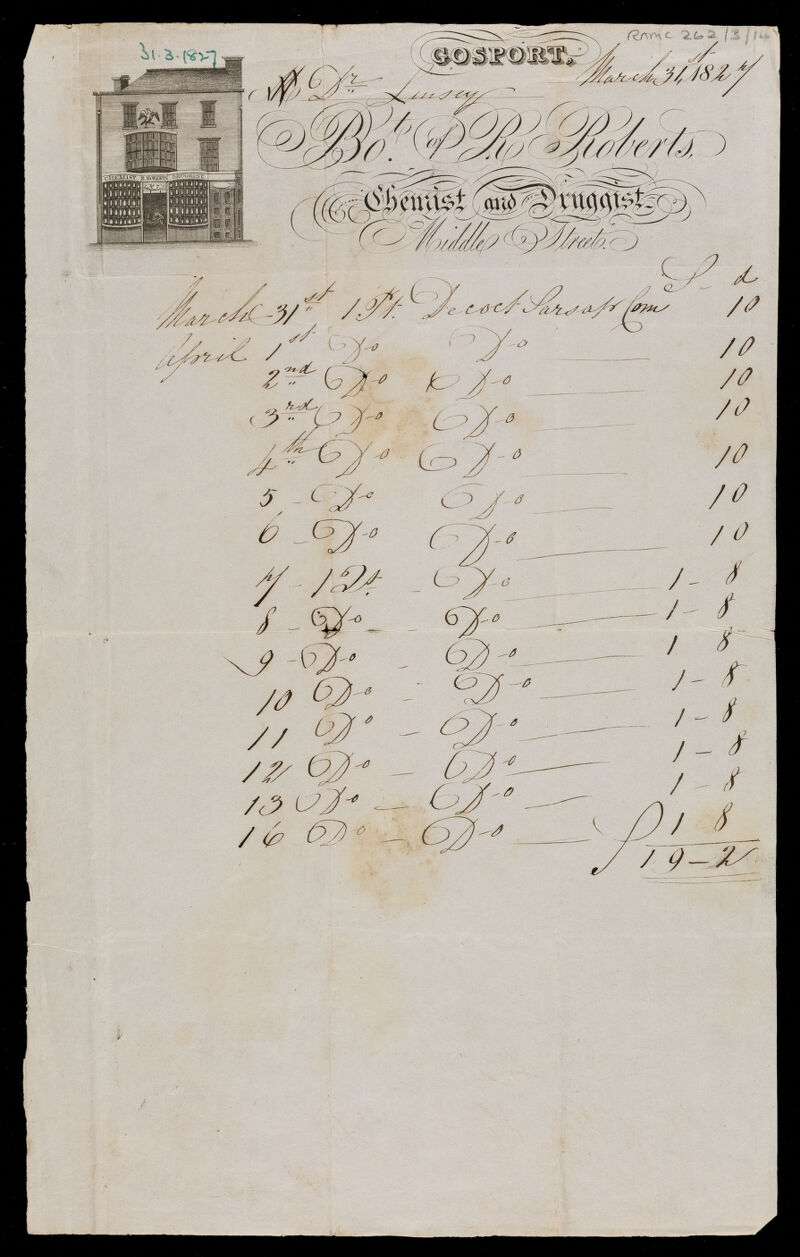 31.3.1827
RAMC 262/3/14
GOSPORT,
March 31st, 1827
Dr Linsey
Bot. of R Roberts,
Chemist and Druggist
Middle Street.
CHEMIST R. ROBERTS DRUGGIST
S - d
March 31st 1 Pt. Decoct Sarsap Com 10
April 1st Do Do 10
2nd Do Do 10
3rd Do Do 10
4th Do Do 10
5 - Do Do 10
6 - Do Do 10
7 - 1 2t. - Do 1 - 8
8 - Do - Do 1 - 8
9 - Do - Do 1 8
10 Do - Do 1 - 8
11 Do - Do 1 - 8
12 Do - Do 1 - 8
13 Do - Do 1 - 8
16 Do - Do 1 8
19 - 2